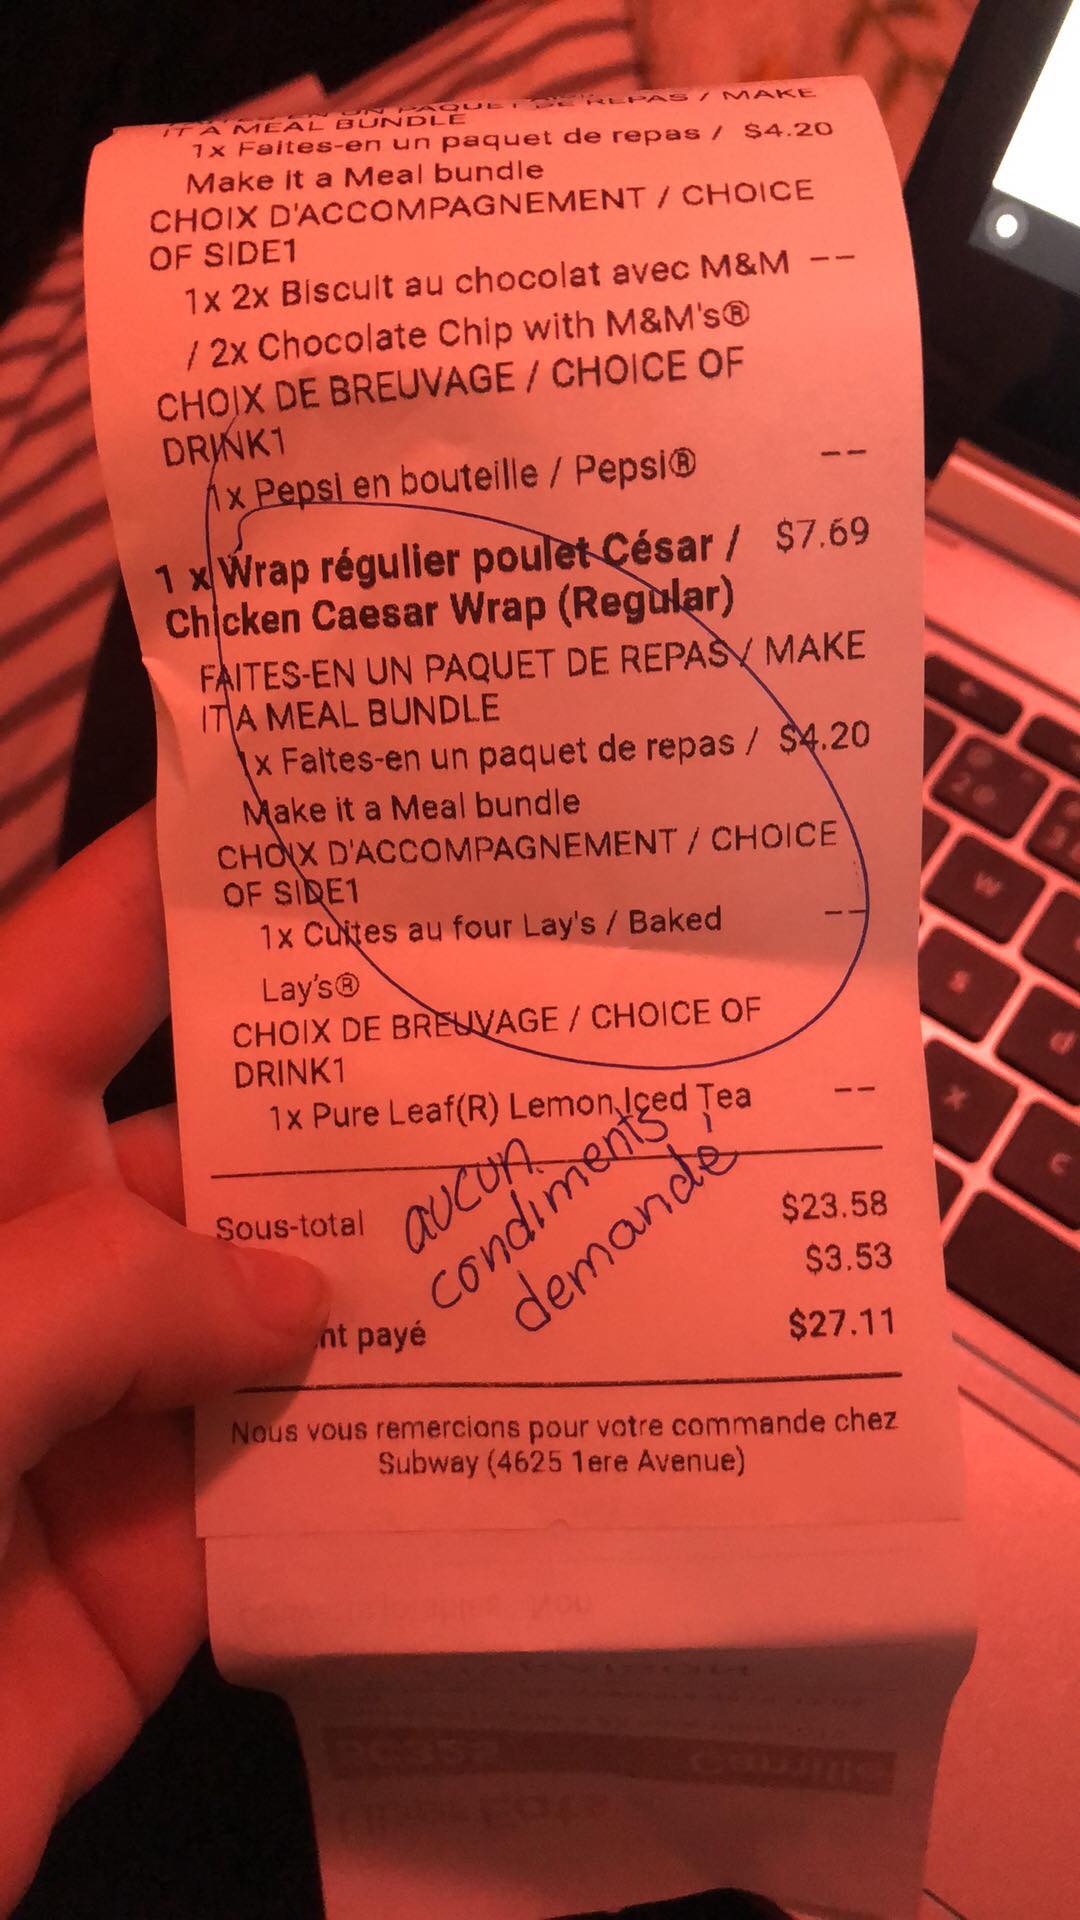 PAQUET DE REPAS / MAKE
IT A MEAL BUNDLE
1x Faites-en un paquet de repas / $4.20
Make it a Meal bundle
CHOIX D'ACCOMPAGNEMENT / CHOICE
OF SIDE1
1x 2x Biscuit au chocolat avec M&M --
/ 2x Chocolate Chip with M&M's®
CHOIX DE BREUVAGE / CHOICE OF
DRINK1
1x Pepsi en bouteille / Pepsi® --
1 x Wrap régulier poulet César / $7.69
Chicken Caesar Wrap (Regular)
FAITES-EN UN PAQUET DE REPAS / MAKE
IT A MEAL BUNDLE
1x Faites-en un paquet de repas / $4.20
Make it a Meal bundle
CHOIX D'ACCOMPAGNEMENT / CHOICE
OF SIDE1
1x Cuites au four Lay's / Baked --
Lay's®
CHOIX DE BREUVAGE / CHOICE OF
DRINK1
1x Pure Leaf(R) Lemon Iced Tea --
aucun
condiments
demandé
Sous-total $23.58
$3.53
nt payé $27.11
Nous vous remercions pour votre commande chez
Subway (4625 1ere Avenue)
Camille